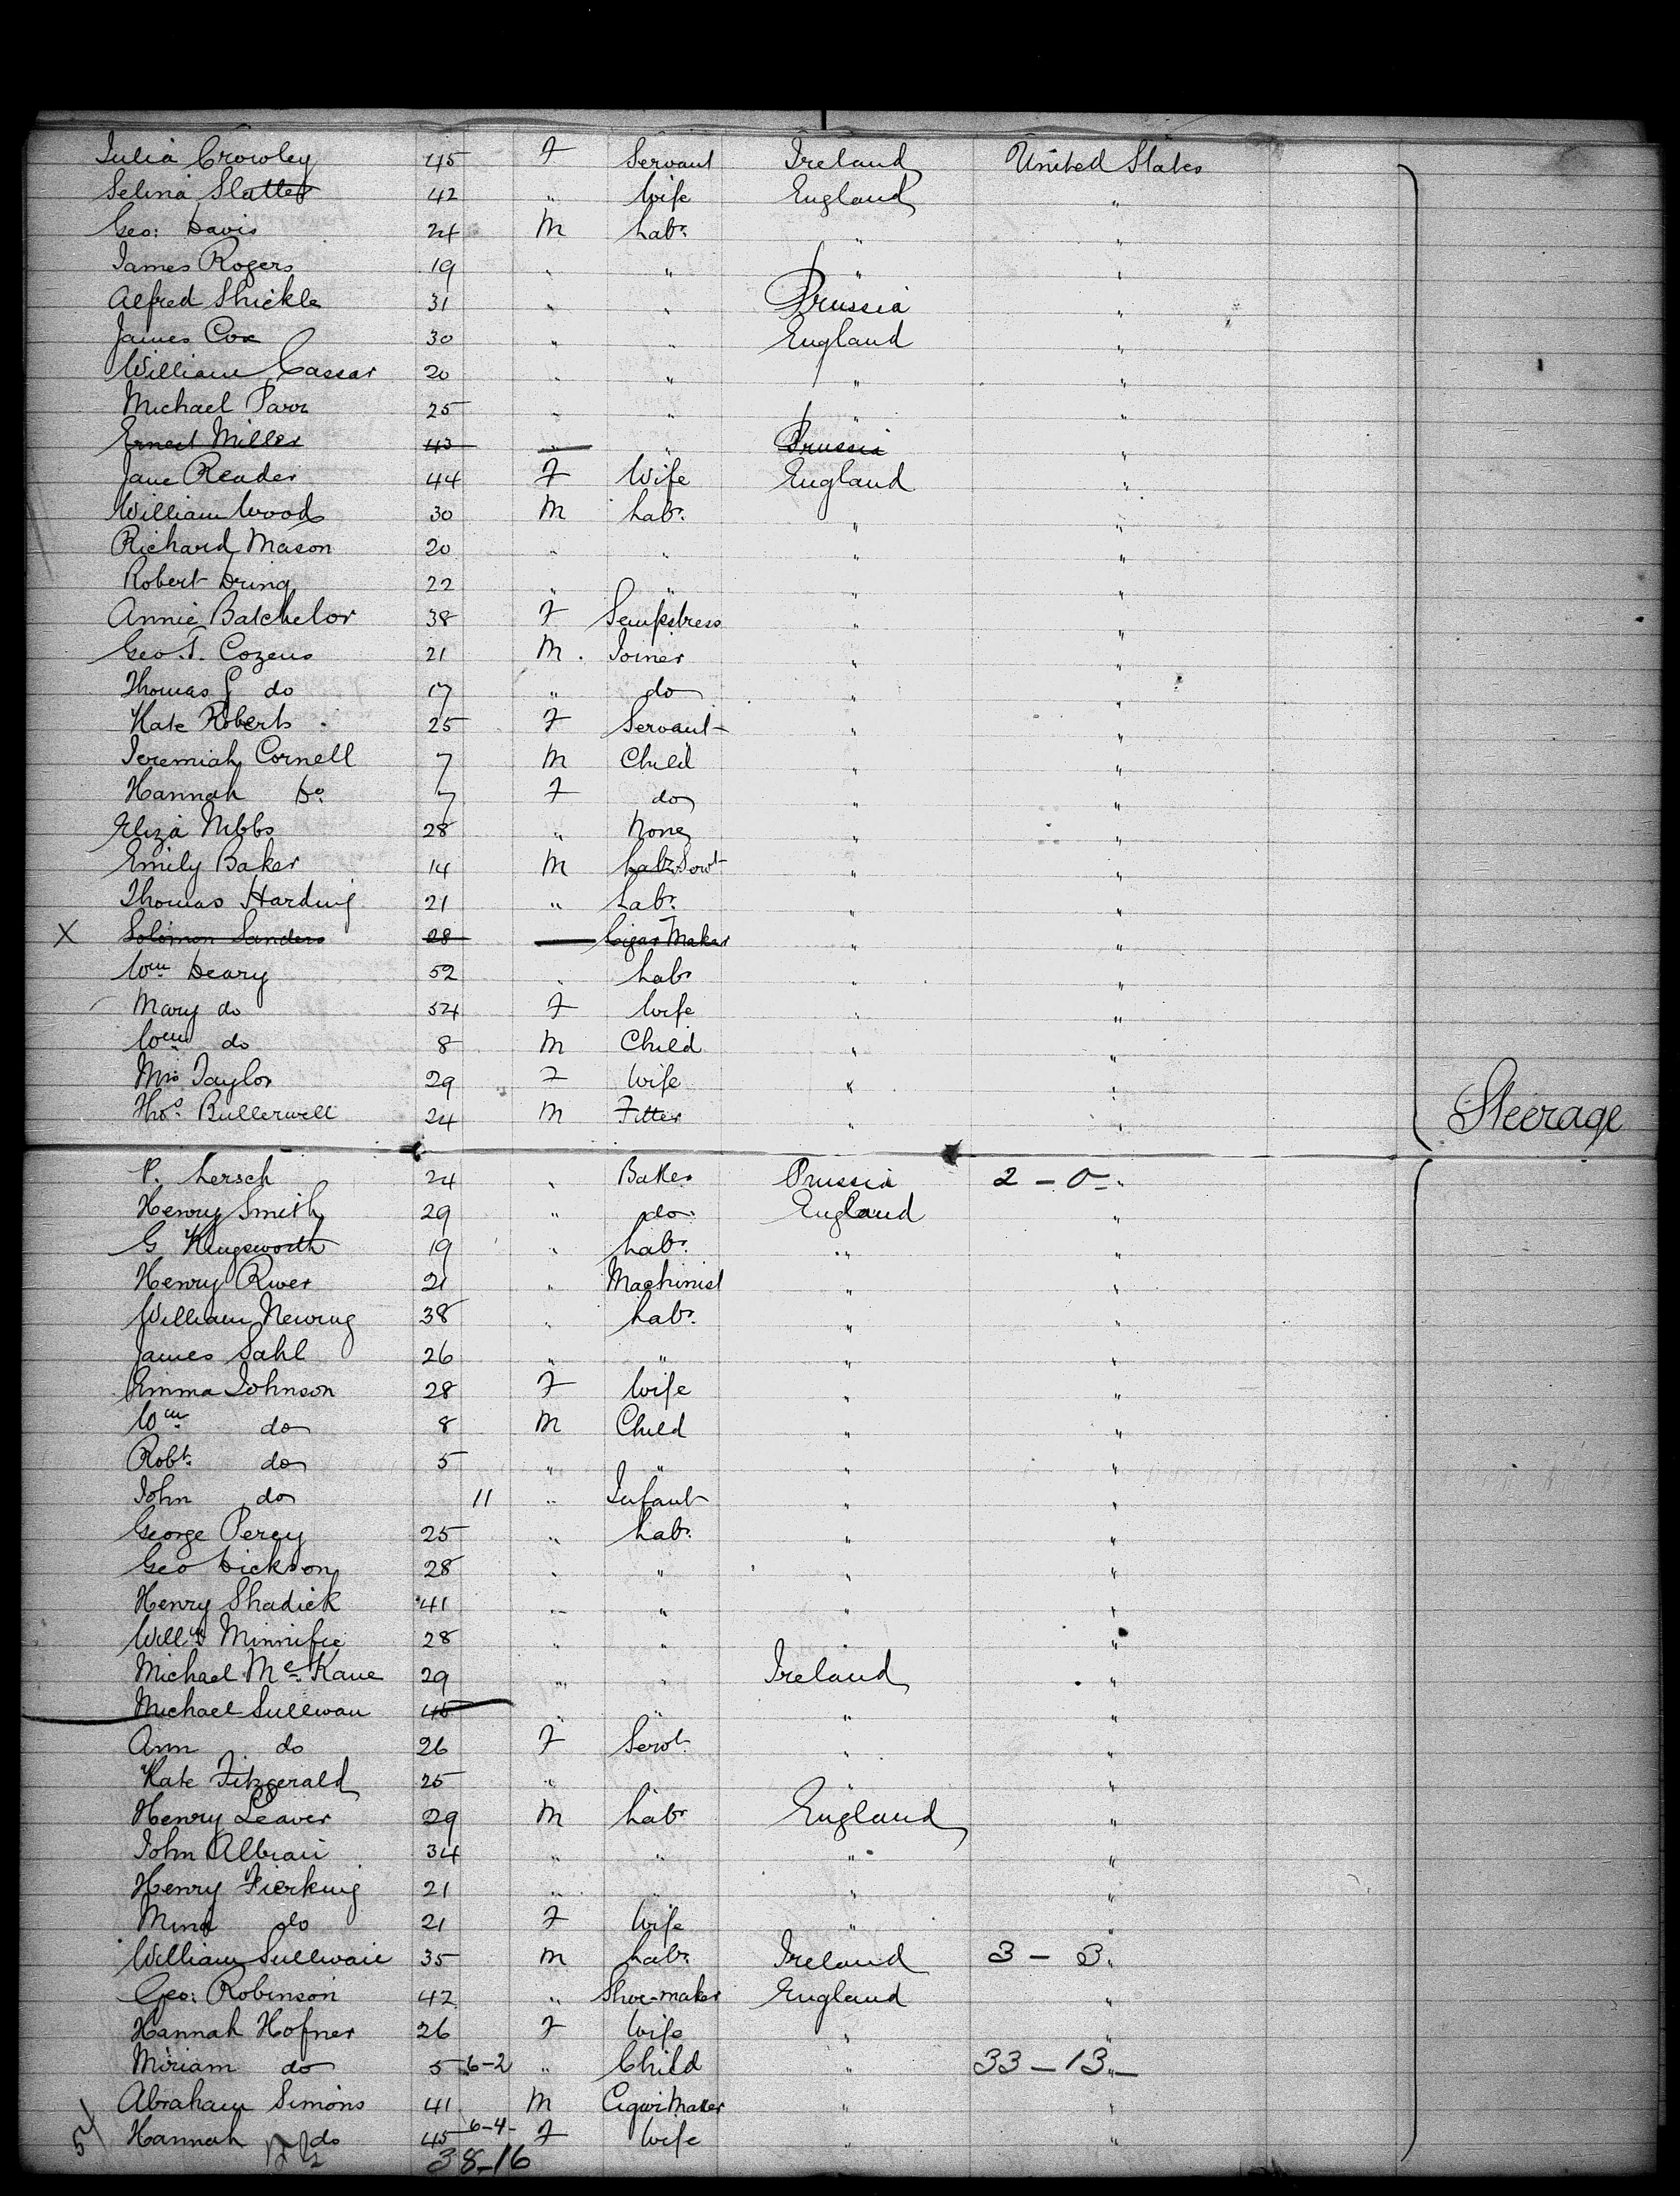 Julia Crowley 45 F Servant Ireland United States
Selina Slatter 42 " Wife England "
Geo: Davis 24 M Labr. " "
James Rogers 19 " " " "
Alfred Shickle 31 " " Prussia "
James Cox 30 " " England "
William Cassar 20 " " " "
Michael Parr 25 " " " "
Ernest Miller 43 " " Prussia "
Jane Reader 44 F Wife England "
William Wood 30 M Labr. " "
Richard Mason 20 " " " "
Robert Dring 22 " " " "
Annie Batchelor 38 F Sempstress " "
Geo. T. Cozens 21 M. Joiner " "
Thomas G do 17 " do " "
Kate Roberts 25 F Servant " "
Jeremiah Cornell 7 M Child " "
Hannah Do. 7 F do " "
Eliza Nibbs 28 " None " "
Emily Baker 14 M Labr Servt " "
Thomas Harding 21 " Labr. " "
X Solomon Sanders 28 Cigar Maker " "
Wm Deary 52 " Labr " "
Mary do 54 F Wife " "
Wm do 8 M Child " "
Mrs Taylor 29 F Wife " "
Thos. Bullerwell 24 M Fitter " "
Steerage
P. Lersch 24 " Baker Prussia 2 - 0 - "
Henry Smith 29 " do England "
G Kingsworth 19 " Labr. " "
Henry River 21 " Machinist " "
William Newing 38 " Labr. " "
James Sahl 26 " " " "
Emma Johnson 28 F Wife " "
Wm do 8 M Child " "
Robt. do 5 " " " "
John do 11 " Infant " "
George Percy 25 " Labr. " "
Geo Dickson 28 " " " "
Henry Shadick 41 " " " "
Willm Minnifie 28 " " " "
Michael Mc Kane 29 " " Ireland "
Michael Sullivan 45 " " " "
Ann do 26 F Servt. " "
Kate Fitzgerald 25 " " " "
Henry Leaver 29 M Labr England "
John 34 " " " "
Henry Fierking 21 " " " "
Mina do 21 F Wife " "
William Sullivan 35 M Labr. Ireland 3 - 3 "
Geo: Robinson 42 " Shoe-maker England "
Hannah Hofner 26 F Wife " "
Miriam do 5 6-2 " Child " 33 - 13 "
Abraham Simons 41 M Cigar Maker " "
Hannah do 45 6-4- F Wife " "
38-16